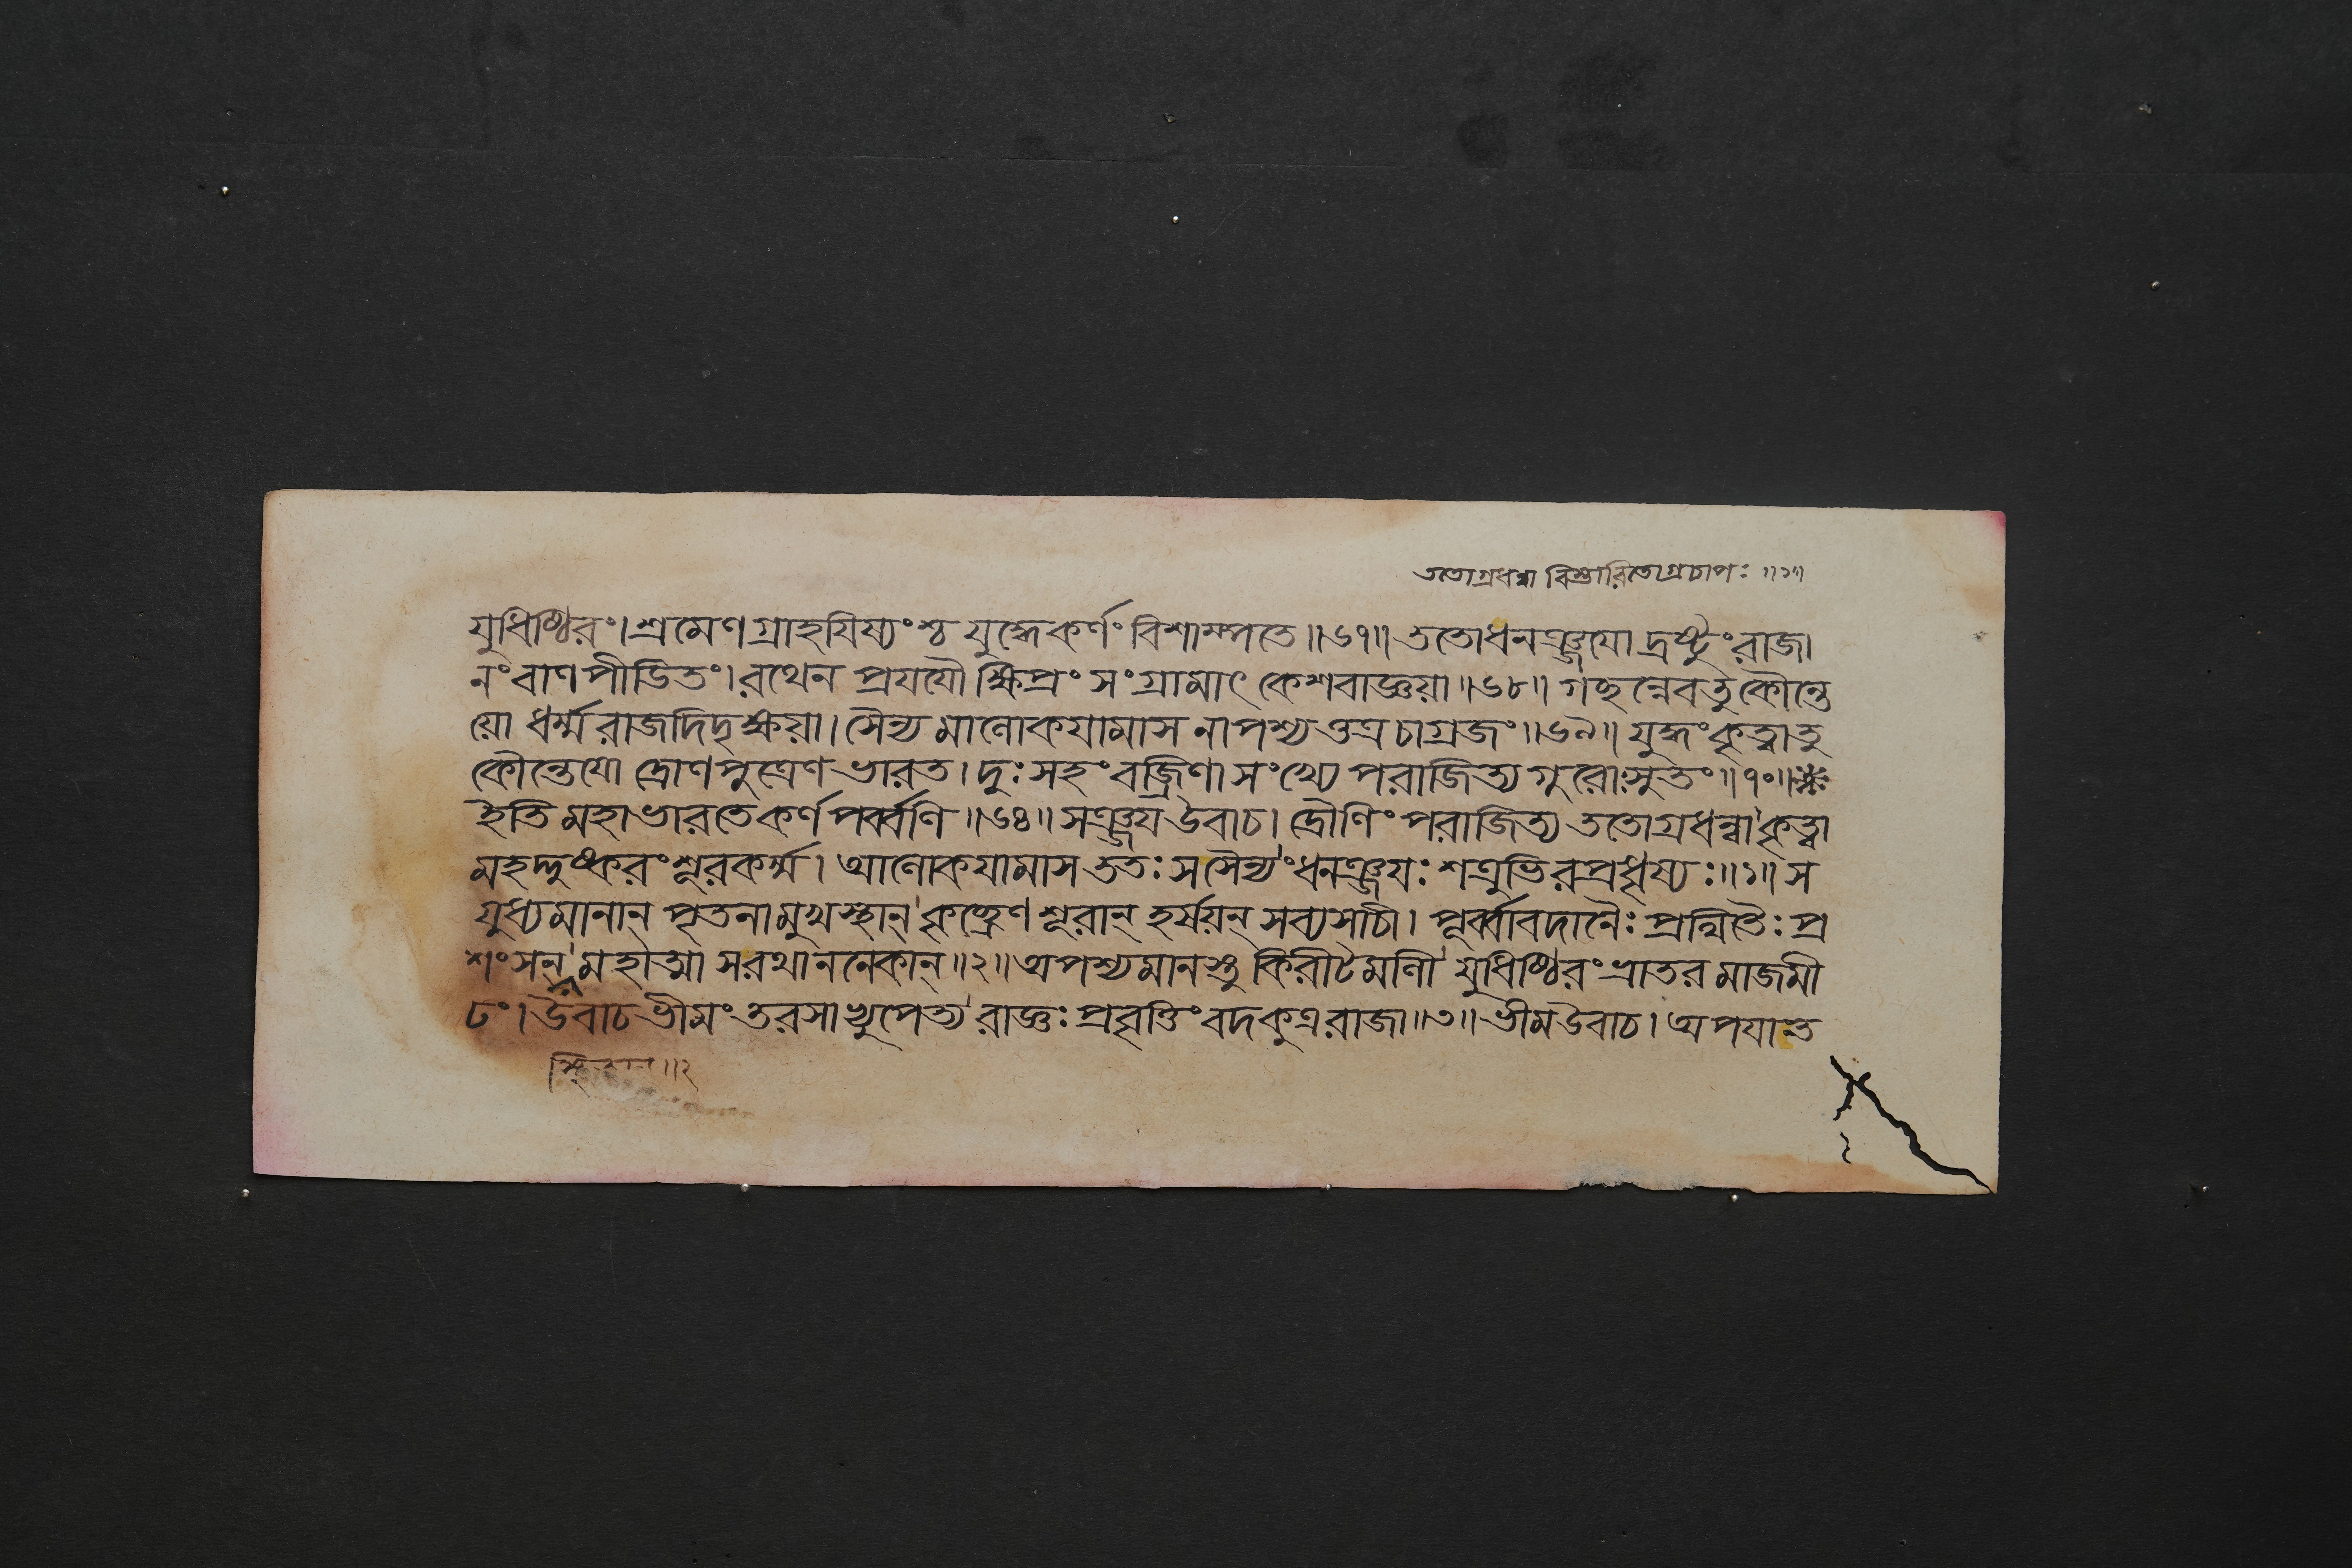 ততোগ্রধন্বা বিস্ফারিতোগ্রচাপঃ ॥১॥
যুধিষ্ঠিরং। শ্রমেণ গ্রাহয়িষ্যংশ্চ যুদ্ধেকর্ণং বিশাম্পতে॥৬৭॥ ততোধনঞ্জযো দ্রষ্টুং রাজা
নং বাণপীডিতং। রথেন প্রযযৌ ক্ষিপ্রং সংগ্রামাৎ কেশবাজ্ঞয়া॥৬৮॥ গচ্ছন্নেবতু কৌন্তে
য়ো ধর্ম্মরাজদিদৃক্ষয়া। সৈন্যমালোকযামাস নাপশ্যত্তত্র চাগ্রজং॥৬৯॥ যুদ্ধং কৃত্বাতু
কৌন্তেযো দ্রোণপুত্রেণ ভারত। দুঃসহং বজ্রিণা সংখ্যে পরাজিত্য গুরোঃসুতং॥৭০॥
ইতি মহাভারতে কর্ণপর্ব্বণি॥৬৪॥ সঞ্জয উবাচ। দ্রৌণিং পরাজিত্য ততোগ্রধন্বা কৃত্বা
মহদ্দুষ্করং শূরকর্ম্ম। আলোকযামাস ততঃ স সৈন্যং ধনঞ্জযঃ শত্রুভিরপ্রধৃষ্যঃ॥১॥ স
যুধ্যমানান্ পৃতনামুখস্থান্ শূরান্ হর্ষয়ন্ সব্যসাচী। পূর্ব্বাবদানৈঃ প্রথিতৈঃ প্র
শংসন্ মহাত্মা সরথাননেকান্॥২॥ অপশ্যমানস্তু কিরীটমালী যুধিষ্ঠিরং ভ্রাতরমাজমী
ঢং। উবাচ ভীমং তরসাভ্যুপেত্য রাজ্ঞঃ প্রবৃত্তিং বদ কুত্র রাজা॥৩॥ ভীম উবাচ। অপযাত
॥২